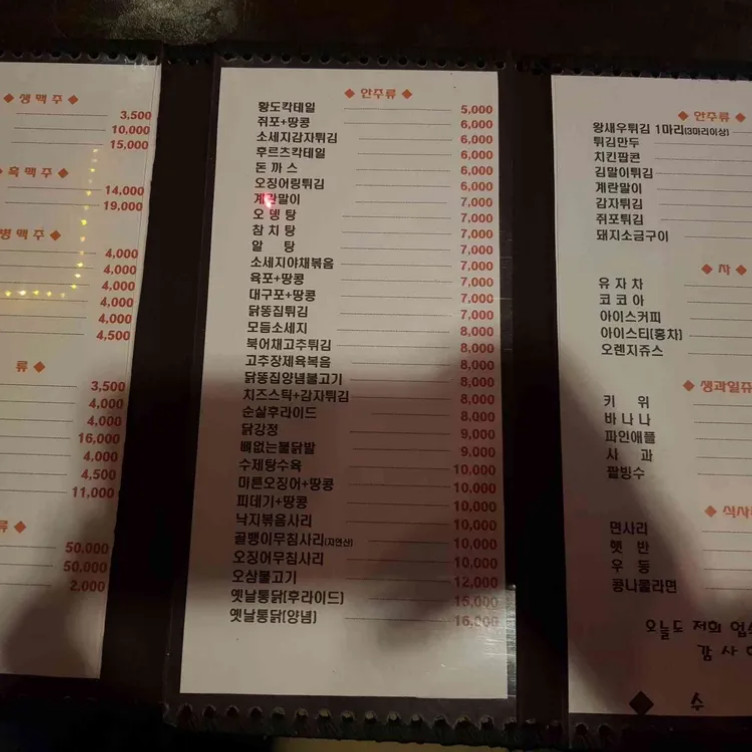 ◆ 생 맥 주 ◆
3,500
10,000
15,000
흑 맥 주 ◆
14,000
19,000
병 맥 주 ◆
4,000
4,000
4,000
4,000
4,000
4,500
류 ◆
3,500
4,000
4,000
16,000
4,000
4,500
11,000
류 ◆
50,000
50,000
2,000
◆ 안주류 ◆
황도칵테일 5,000
쥐포+땅콩 6,000
소세지감자튀김 6,000
후르츠칵테일 6,000
돈 까 스 6,000
오징어링튀김 6,000
계란말이 7,000
오 뎅 탕 7,000
참 치 탕 7,000
알 탕 7,000
소세지야채볶음 7,000
육포+땅콩 7,000
대구포+땅콩 7,000
닭똥집튀김 7,000
모듬소세지 8,000
북어채고추튀김 8,000
고추장제육볶음 8,000
닭똥집양념불고기 8,000
치즈스틱+감자튀김 8,000
순살후라이드 8,000
닭강정 9,000
뼈없는불닭발 9,000
수제탕수육 10,000
마른오징어+땅콩 10,000
피데기+땅콩 10,000
낙지볶음사리 10,000
골뱅이무침사리(자연산) 10,000
오징어무침사리 10,000
오삼불고기 12,000
옛날통닭(후라이드) 15,000
옛날통닭(양념) 16,000
◆ 안주류 ◆
왕새우튀김 1마리(3마리이상)
튀김만두
치킨팝콘
김말이튀김
계란말이
감자튀김
쥐포튀김
돼지소금구이
◆ 차 ◆
유 자 차
코 코 아
아이스커피
아이스티(홍차)
오렌지쥬스
◆ 생과일쥬
키 위
바 나 나
파인애플
사 과
팥빙수
◆ 식사
면사리
햇 반
우 동
콩나물라면
오늘도 저희 업소
감 사
◆ 수